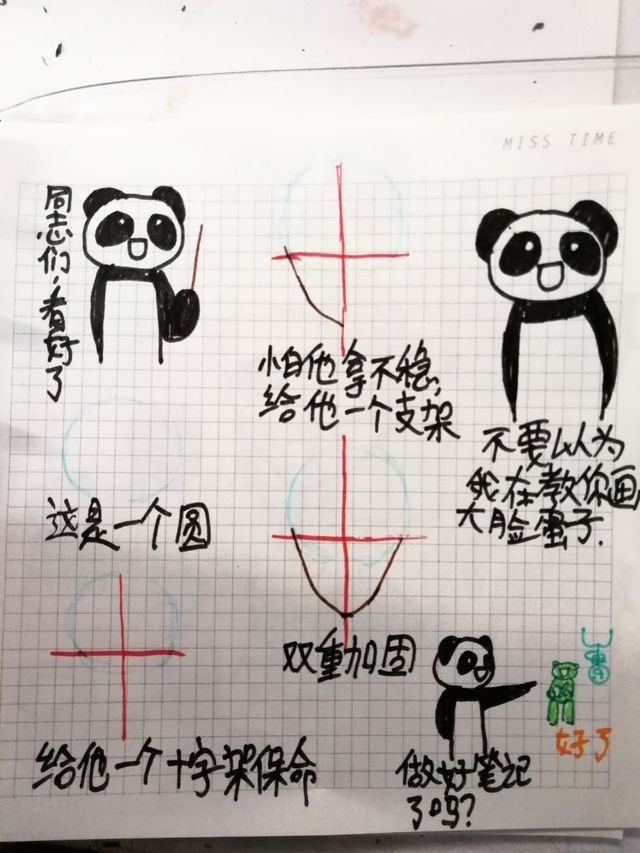 MISS TIME
同志们,看好了
这是一个圆
给他一个十字架保命
怕他拿不稳,
给他一个支架
双重加固
不要以为
我在教你画
大脸蛋子.
做好笔记
了吗?
好了